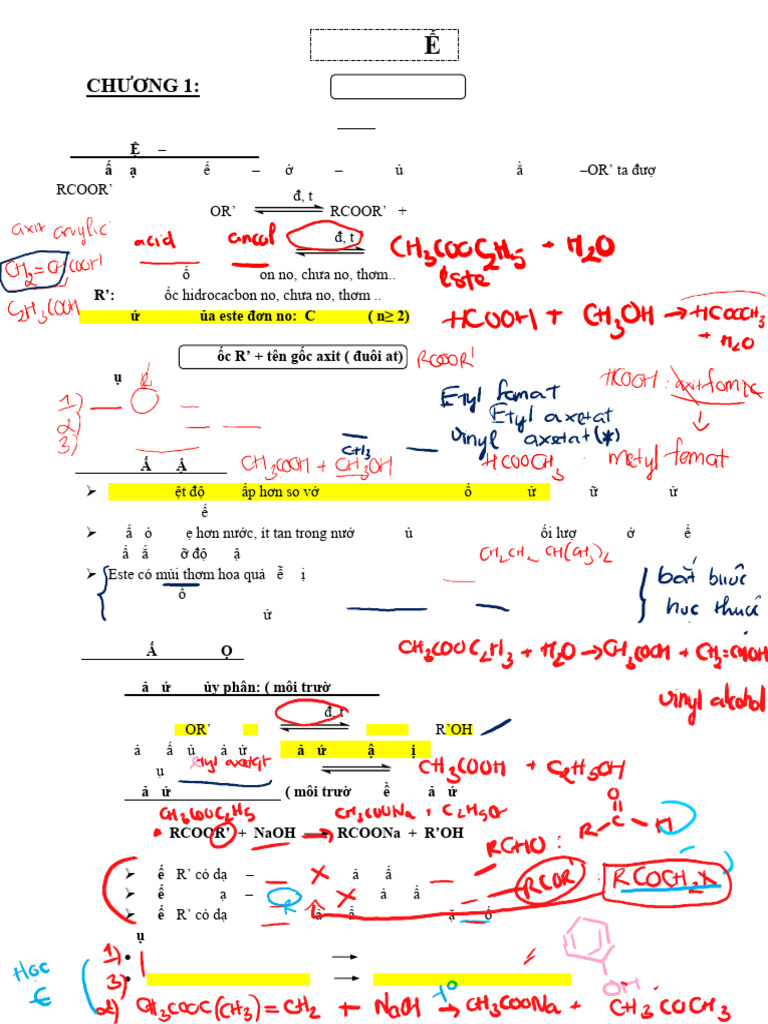 Ế
CHƯƠNG 1:
Ệ –
ấ ạ ế – ở – ủ ằ –OR’ ta đượ
RCOOR’
đ, t
OR’ RCOOR’ +
axit acrylic
acid ancol đ, t CH3COOC2H5 + H2O
CH2=CHCOOH
este
ố on no, chưa no, thơm..
C2H3COOH
R’: ốc hidrocacbon no, chưa no, thơm ..
ứ ủa este đơn no: C ( n≥ 2)
HCOOH + CH3OH → HCOOCH3
+ H2O
ốc R’ + tên gốc axit ( đuôi at) RCOOR'
ụ
HCOOH : axit fomic
1)
2)
3)
Etyl fomat
Etyl axetat
Vinyl axetat (*)
CH3
HCOOCH3 : metyl fomat
Ấ Ậ CH3COOH + CH3OH
➢ ệt độ ấp hơn so vớ ố ử ữ ử
ế
➢ ấ ỏ ẹ hơn nước, ít tan trong nướ ủ ối lượ ớ ể
ấ ắ ỡ độ ậ
CH2CH2 CH(CH3)2
➢ Este có mùi thơm hoa quả ễ ị
ồ
ứ
bắt buộc
học thuộc
Ấ Ọ
CH3COOC2H3 + H2O → CH3COOH + CH2=CHOH
vinyl alcohol
ả ứ ủy phân: ( môi trườ
đ, t
OR’ R’OH
ả ấ ủ ả ứ ả ứ ậ ị
ụ etyl axetat CH3COOH + C2H5OH
ả ứ ( môi trườ ề ả ứ
CH3COOC2H5 CH3COONa + C2H5OH
RCOOR’ + NaOH RCOONa + R’OH
O
R C H
RCHO :
➢ ế R’ có dạ – ả ẩ
➢ ế ạ – ả ẩ
RCOR' : RCOCH2X
➢ ế R’ có dạ ả ẩ ặ ố
ụ
1) • →
3) • →
OH
Học
2) CH3COOC(CH3)=CH2 + NaOH t° → CH3COONa + CH3COCH3